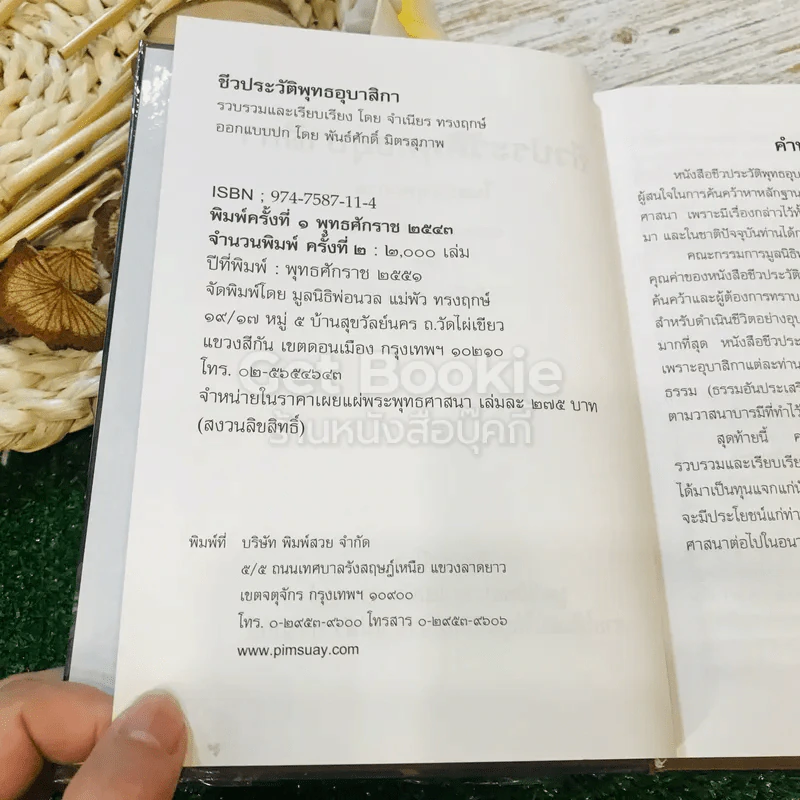 ชีวประวัติพุทธอุบาสิกา
รวบรวมและเรียบเรียง โดย จำเนียร ทรงฤกษ์
ออกแบบปก โดย พันธ์ศักดิ์ มิตรสุภาพ
ISBN ; 974-7587-11-4
พิมพ์ครั้งที่ ๑ พุทธศักราช ๒๕๔๓
จำนวนพิมพ์ ครั้งที่ ๒ : ๒,๐๐๐ เล่ม
ปีที่พิมพ์ : พุทธศักราช ๒๕๕๑
จัดพิมพ์โดย มูลนิธิพ่อนวล แม่พัว ทรงฤกษ์
๑๙/๑๗ หมู่ ๕ บ้านสุขวัลย์นคร ถ.วัดไผ่เขียว
แขวงสีกัน เขตดอนเมือง กรุงเทพฯ ๑๐๒๑๐
โทร. ๐๒-๕๖๕๔๖๔๓
จำหน่ายในราคาเผยแผ่พระพุทธศาสนา เล่มละ ๒๗๕ บาท
(สงวนลิขสิทธิ์)
พิมพ์ที่ บริษัท พิมพ์สวย จำกัด
๕/๕ ถนนเทศบาลรังสฤษฎ์เหนือ แขวงลาดยาว
เขตจตุจักร กรุงเทพฯ ๑๐๙๐๐
โทร. ๐-๒๙๕๓-๙๖๐๐ โทรสาร ๐-๒๙๕๓-๙๖๐๖
www.pimsuay.com
Get Bookie
ร้านหนังสือบุ๊คกี้
หนังสือชีวประวัติพุทธอุบ
ผู้สนใจในการค้นคว้าหาหลักฐาน
ศาสนา เพราะมีเรื่องกล่าวไว้ทั้
มา และในชาติปัจจุบันท่านได้ก
คณะกรรมการมูลนิธิพ
คุณค่าของหนังสือชีวประวัติ
ค้นคว้าและผู้ต้องการทราบ
สำหรับดำเนินชีวิตอย่างอุบ
มากที่สุด หนังสือชีวประ
เพราะอุบาสิกาแต่ละท่าน
ธรรม (ธรรมอันประเสริ
ตามวาสนาบารมีที่ทำไว้
สุดท้ายนี้
รวบรวมและเรียบเรีย
ได้มาเป็นทุนแจกแก่
จะมีประโยชน์แก่ท่า
ศาสนาต่อไปในอนา